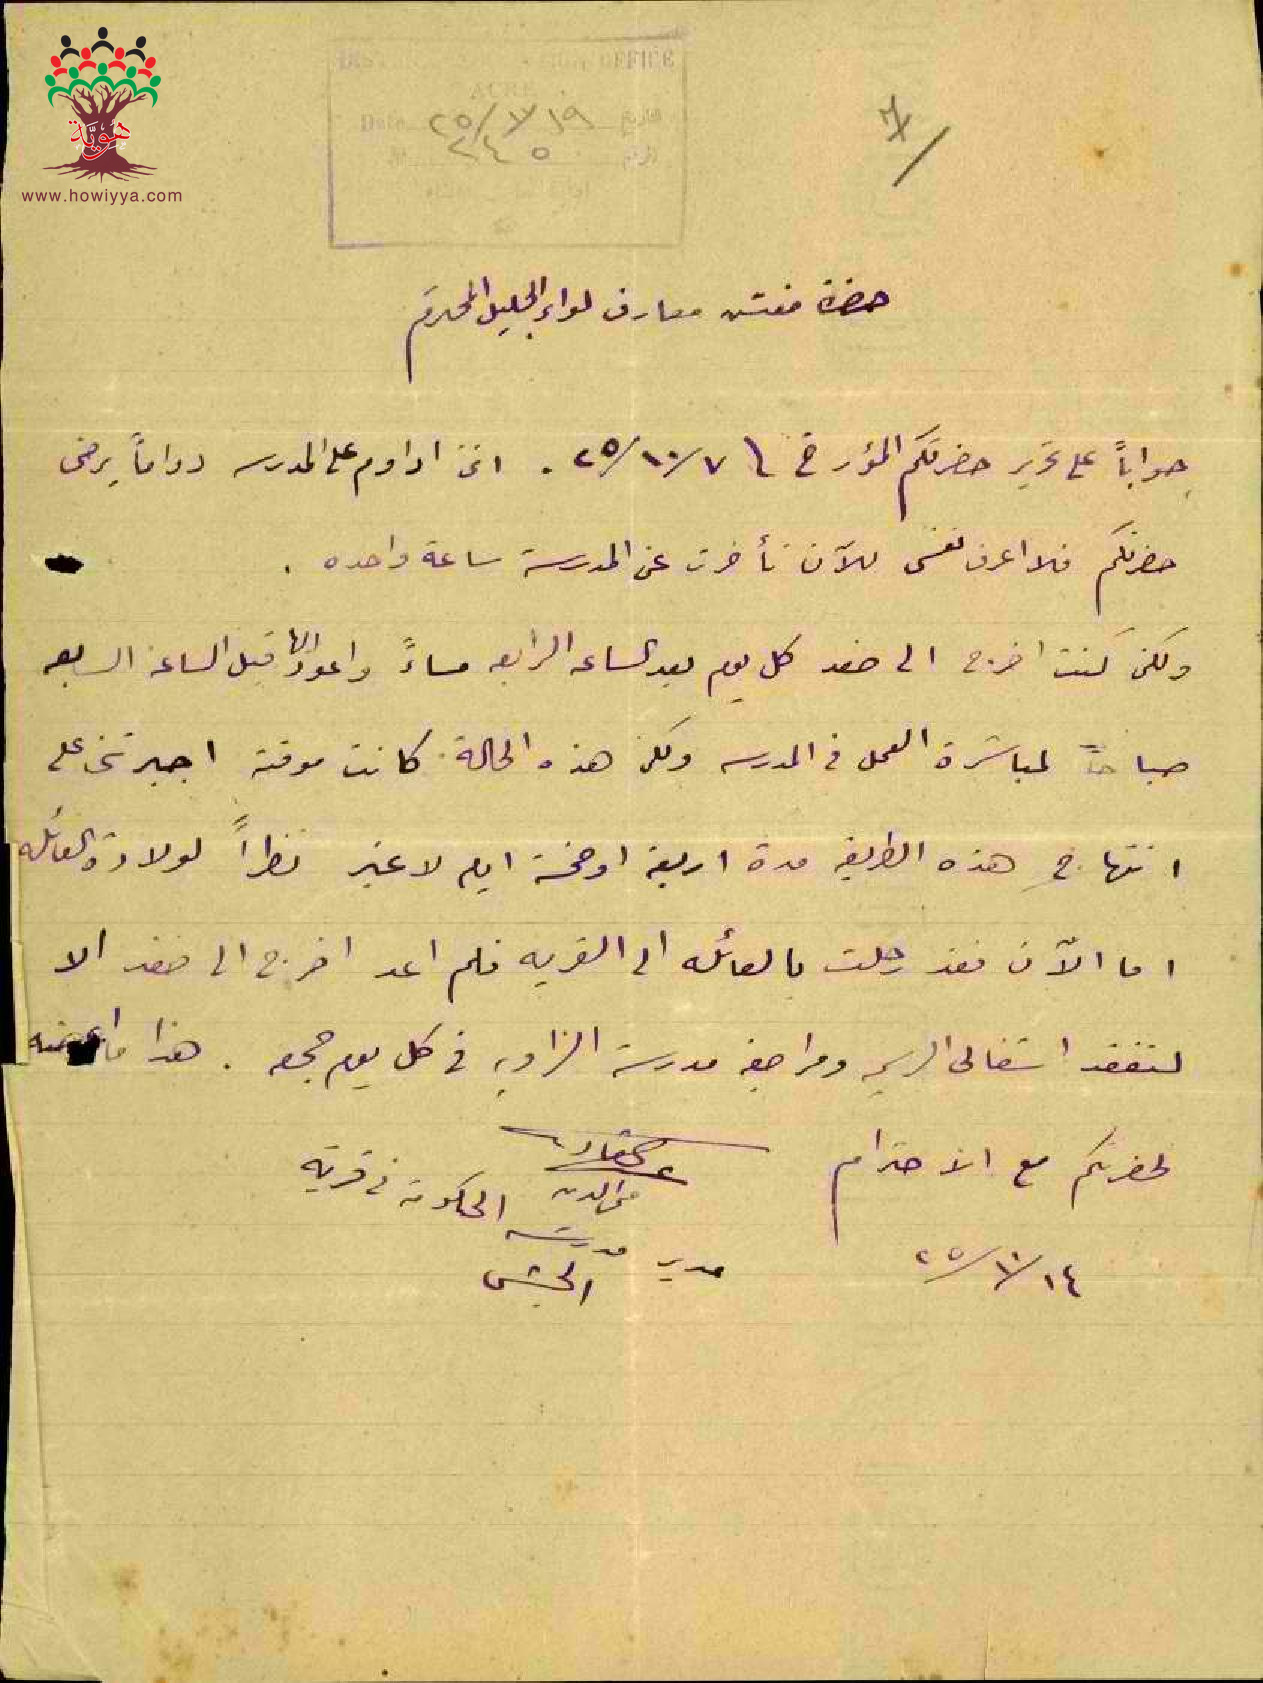 هوية
www.howiyya.com
OFFICE
ACRE
Date ٢٥/ ١٩ التاريخ
٢٤٥ الرقم
حضرة مفتش معارف لواء الجليل المحترم
جواباً على تحرير حضرتكم المؤرخ في ٢٥/١٠/٧ . انني اداوم على المدرسه دواماً يرضي
حضرتكم فلا اعرف نفسي للآن تأخرت عن المدرسة ساعة واحده .
ولكني كنت اخرج الى صفد كل يوم بعد الساعه الرابعه مساءً واعود اليها قبل الساعة السابعه
صباحاً لمباشرة العمل في المدرسه ولكن هذه الحالة كانت موقته اجبرتني على
انتهاج هذه الطريقه مدة اربعة او خمسة ايام لا غير نظراً لولادة العائله
اما الآن فقد رحلت بالعائله الى القريه فلم اعد اخرج الى صفد الا
لتفقد اشغالي ومراجعة مدرسة الزاويه في كل يوم جمعه . هذا ما
لحضرتكم مع الاحترام
محي الدين
مدير مدرسة الحكومة في قرية
الجش
٢٥/١٠/١٤